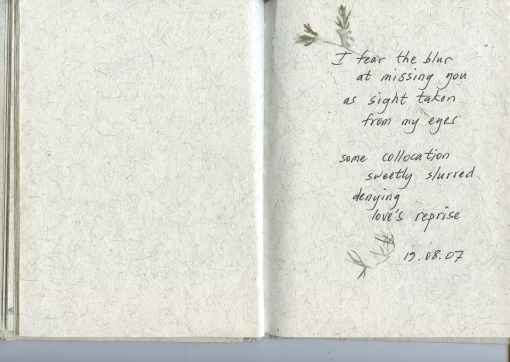 I fear the blur
at missing you
as sight taken
from my eyes
some collocation
sweetly slurred
denying
love's reprise
19.08.07